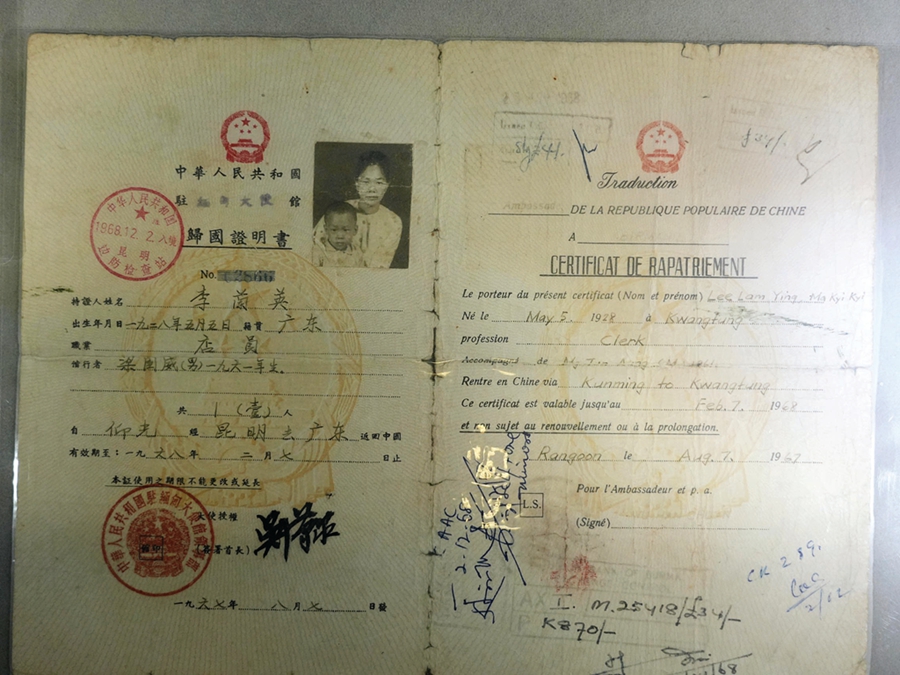 中華人民共和國
駐緬甸大使館
歸國證明書
中华人民共和国
1968.12.2.入境
昆明
边防检查站
No.
持證人姓名 李蘭英
出生年月日 一九二八年五月五日 籍貫 广东
職業 店員
偕行者 梁国威(男)一九六一年生.
共 1(壹) 人
自 仰光 經 昆明去广东 返回中國
有效期至:一九六八年 二月七 日止
本証使用之期限不能更改或延長
大使授權
(簽署首長)
一九六七年 八月七 日發
Traduction
DE LA REPUBLIQUE POPULAIRE DE CHINE
A
CERTIFICAT DE RAPATRIEMENT
Le porteur du présent certificat (Nom et prénom) Lee Lam Ying, Ma Kyi Kyi
Né le May 5. 1928 à Kwangtung
profession Clerk
Accompagné de
Rentre en Chine via Kunming to Kwangtung
Ce certificat est valable jusqu'au Feb. 7. 1968
et non sujet au renouvellement ou à la prolongation.
Rangoon le Aug. 7. 1967
Pour l'Ambassadeur et p. a.
L.S.
(Signé)
AAC
M.25418/£34/-
K870/-
CK 289.